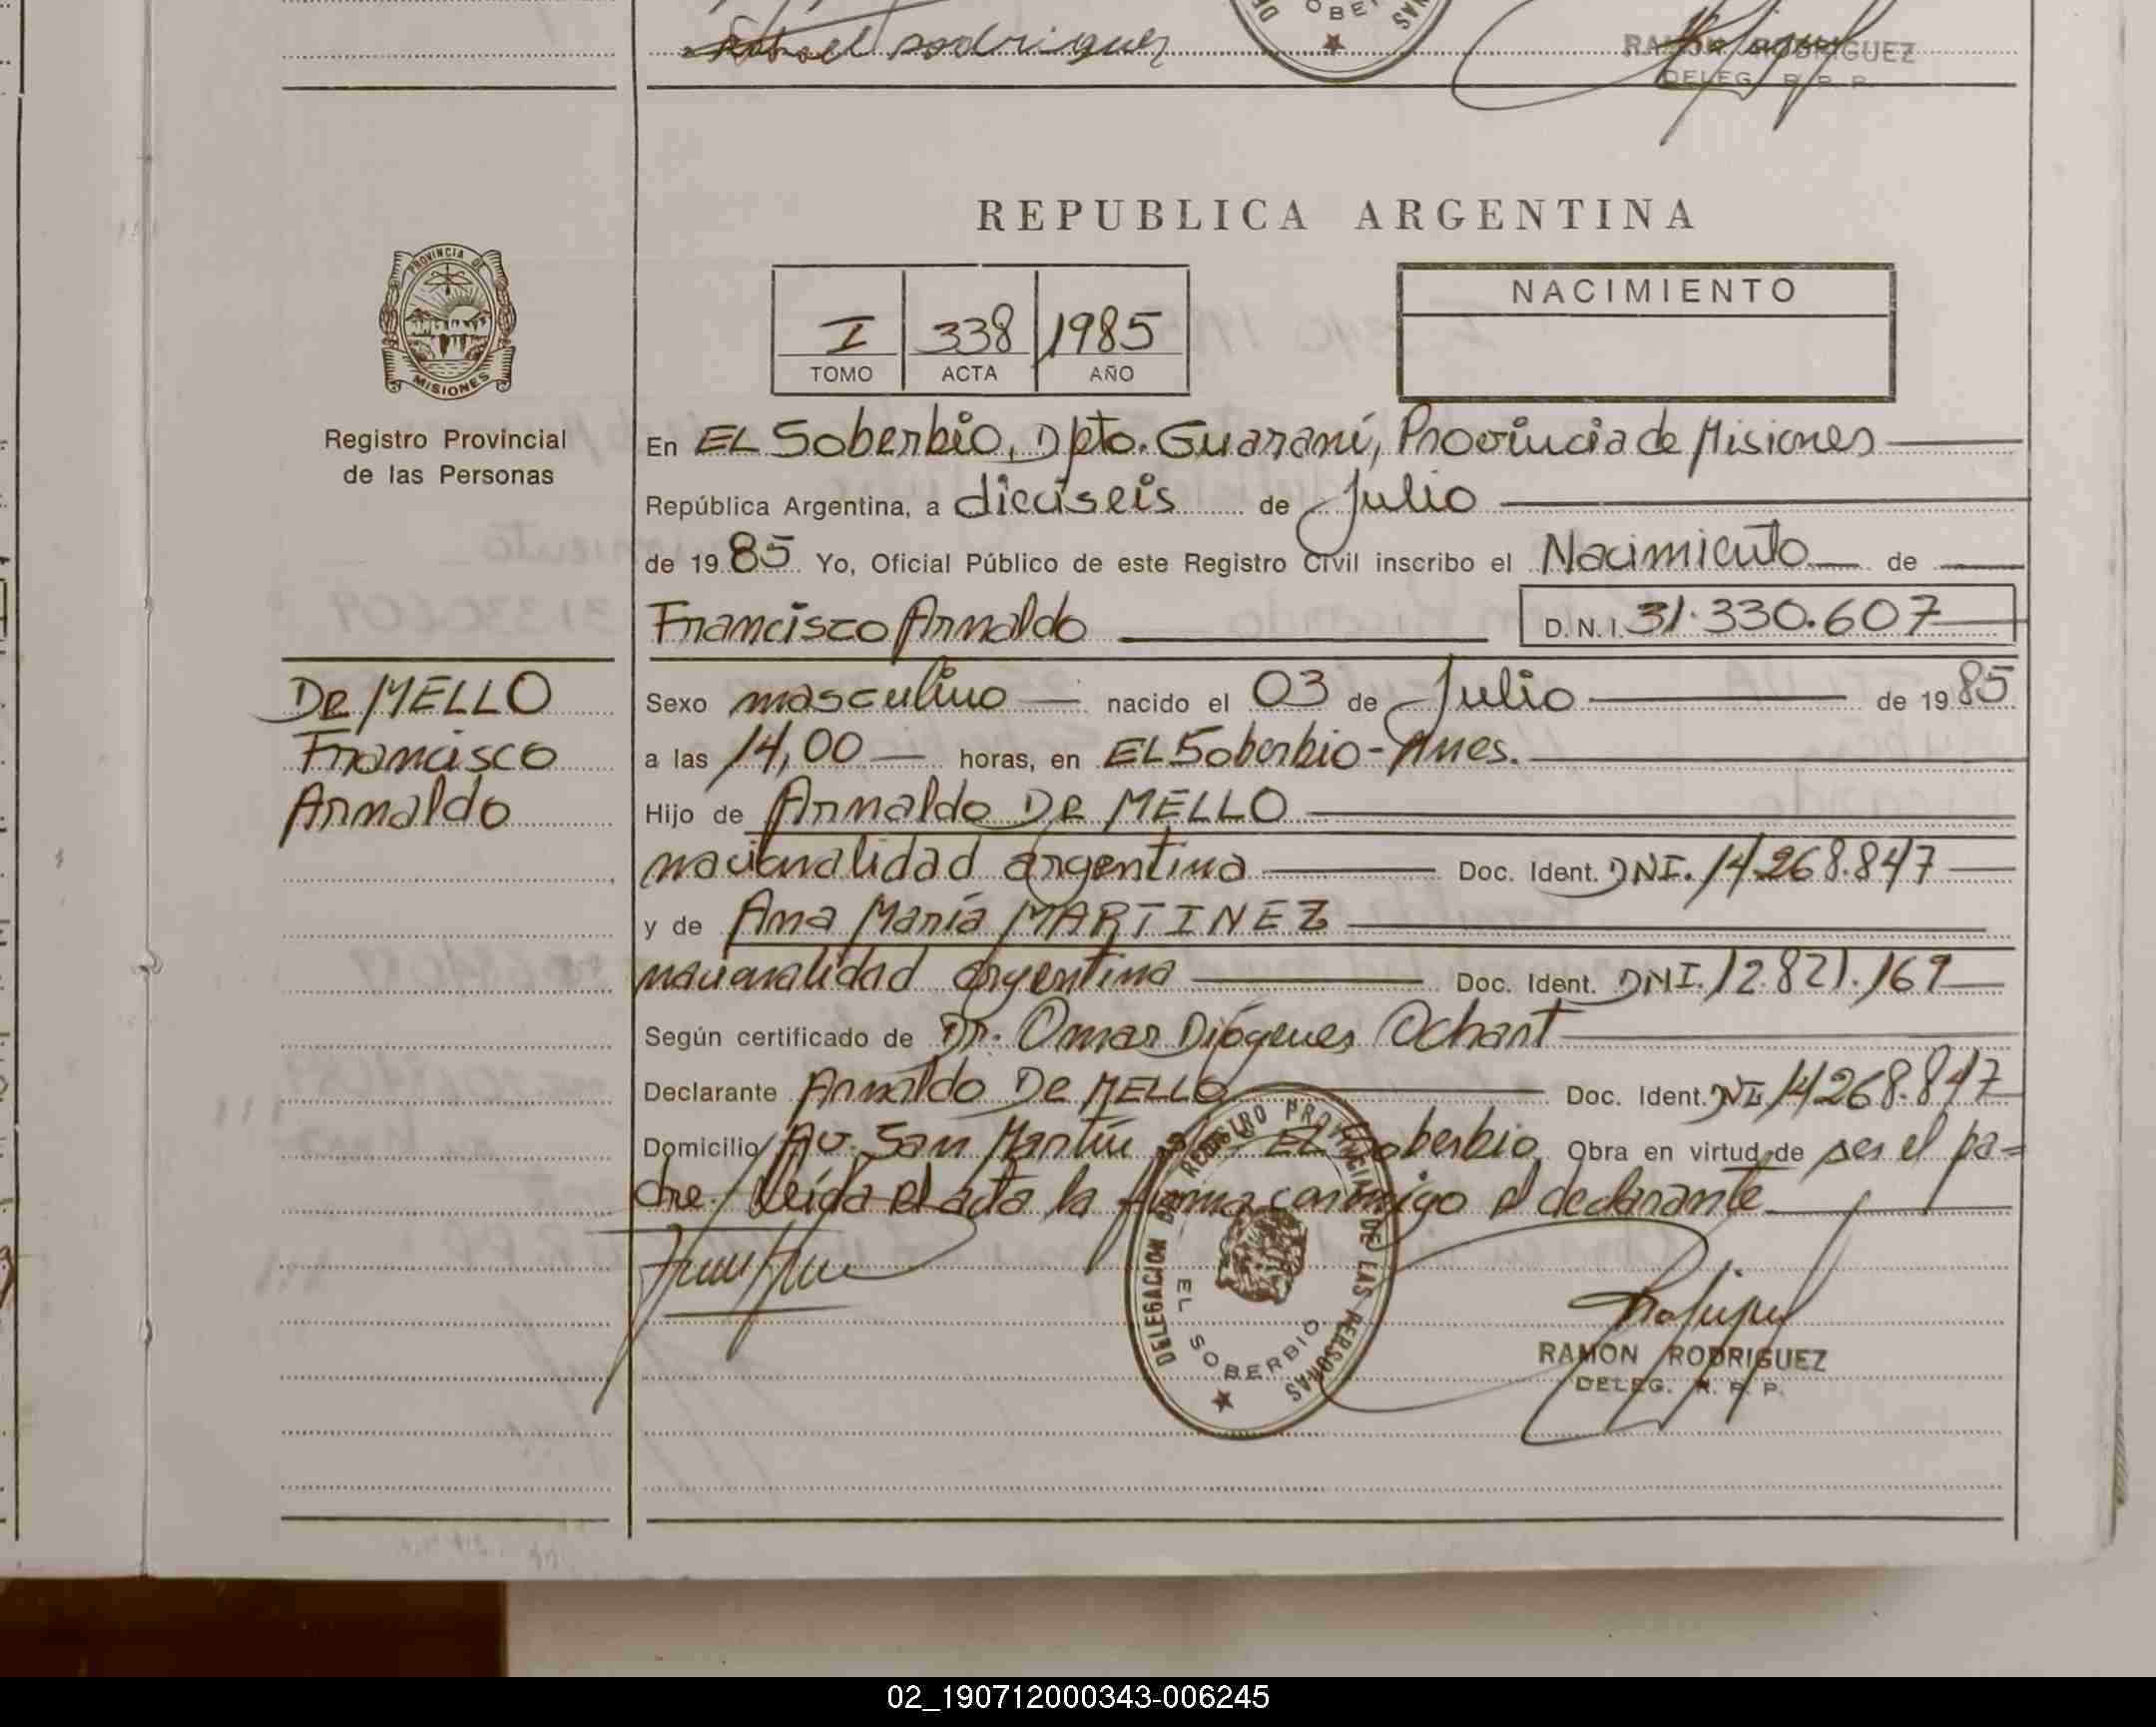 Rafael Rodriguez
RAMON RODRIGUEZ
DELEG. R. R. P.
REPUBLICA ARGENTINA
PROVINCIA DE
MISIONES
Registro Provincial
de las Personas
I 338 1985
TOMO ACTA AÑO
NACIMIENTO
En EL Soberbio, Dpto. Guaraní, Provincia de Misiones
República Argentina, a dieciseis de Julio
de 1985 Yo, Oficial Público de este Registro Civil inscribo el Nacimiento de
Francisco Arnaldo D.N.I. 31.330.607
De MELLO
Francisco
Arnaldo
Sexo masculino nacido el 03 de Julio de 1985
a las 14,00 horas, en EL Soberbio - Mnes.
Hijo de Arnaldo De MELLO
nacionalidad argentina Doc. Ident. DNI. 14.268.847
y de Ana María MARTINEZ
nacionalidad argentina Doc. Ident. DNI. 12.821.169
Según certificado de Dr. Omar Diógenes Ochant
Declarante Arnaldo De MELLO Doc. Ident. DNI 14268.847
Domicilio Av. San Martín EL Soberbio Obra en virtud de ser el pa=
dre. Leída el acta la firma conmigo el declarante
DELEGACION DEL REGISTRO PROVINCIAL DE LAS PERSONAS
EL SOBERBIO
RAMON RODRIGUEZ
DELEG. R. R. P.
02_190712000343-006245